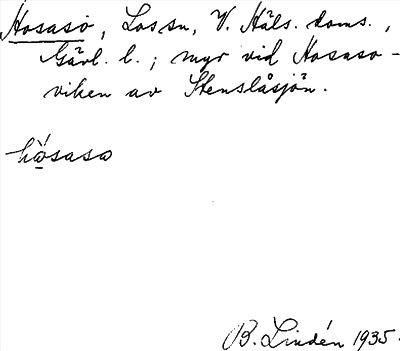 Hosasö, Los sn, V. Häls. doms.,
Gävl. l.; myr vid Hosaso-
viken av Stenslåsjön.
hòsasɷ
B. Lindén 1935.